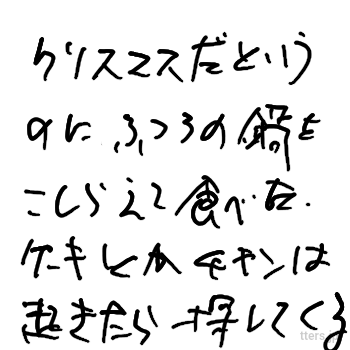 クリスマスだという
のに ふつうの鍋を
こしらえて食べた.
ケーキとかチキンは
起きたら探してくる
tters.jp